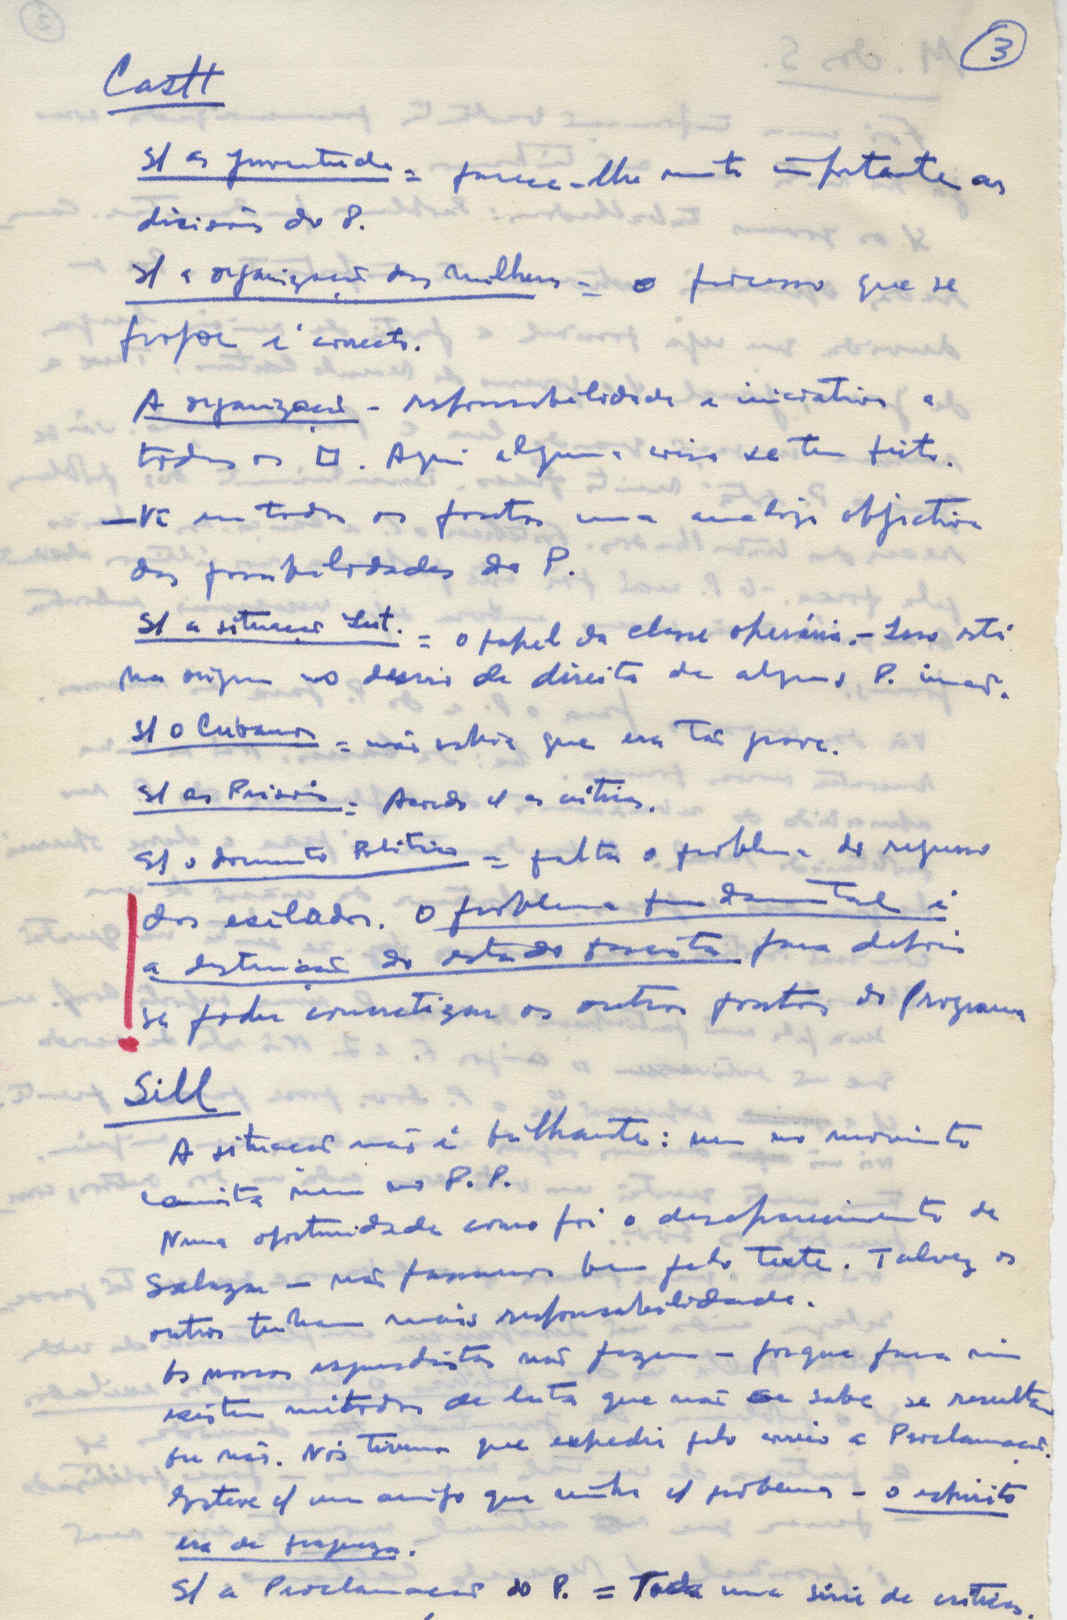 3
Castt
S/ as juventude = parece-lhe muito importante as
decisões do P.
S/ a organização das mulheres = o processo que se
propõe é correcto.
A organização - responsabilidade e iniciativa a
todos os □. Aqui alguma coisa se tem feito.
- Vê em todos os pontos uma análise objectiva
das possibilidades do P.
S/ a situação Int. = o papel da classe operária. - Isso está
na origem no desvio de direita de alguns P. irmãos.
S/ o Cubanos = não sabia que era tão grave.
S/ as Prisões = Acordo c/ as críticas.
S/ o documento Político = falta o problema do regresso
dos exilados. O problema fundamental é
a destruição do estado fascista para depois
se poder concretizar os outros pontos do Programa
Sill
A situação não é brilhante: nem no movimento
nem no P. P.
Numa oportunidade como foi o desaparecimento de
Salazar - não passamos bem pelo teste. Talvez os
outros tenham mais responsabilidade.
Os nossos esquerdistas não fazem - porque para mim
existem métodos de luta que não se sabe se resultam
ou não. Nós tivemos que expedir pelo correio a Proclamação.
Esteve c/ um amigo que vinha c/ problemas - o espírito
era de fraqueza.
S/ a Proclamação do P. = Toda uma série de críticas.